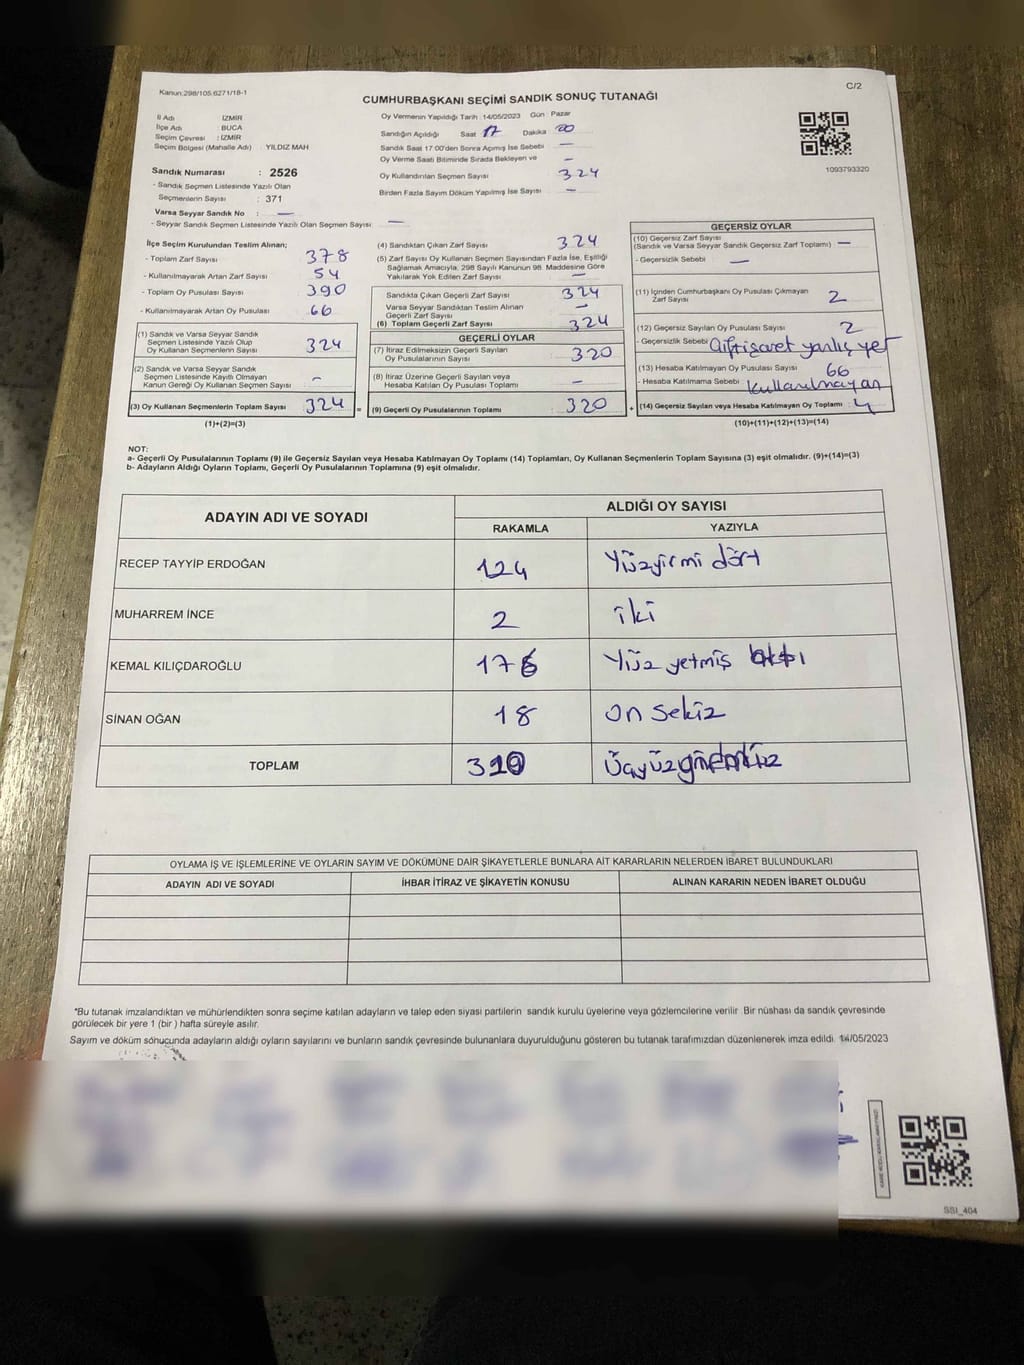 Kanun:298/105.6271/18-1
C/2
CUMHURBAŞKANI SEÇİMİ SANDIK SONUÇ TUTANAĞI
İl Adı : İZMİR
İlçe Adı : BUCA
Seçim Çevresi : İZMİR
Seçim Bölgesi (Mahalle Adı) : YILDIZ MAH
Sandık Numarası : 2526
- Sandık Seçmen Listesinde Yazılı Olan
Seçmenlerin Sayısı : 371
Varsa Seyyar Sandık No : —
- Seyyar Sandık Seçmen Listesinde Yazılı Olan Seçmen Sayısı: —
Oy Vermenin Yapıldığı Tarih : 14/05/2023 Gün : Pazar
Sandığın Açıldığı Saat 17 Dakika 00
Sandık Saat 17:00'den Sonra Açımış İse Sebebi —
Oy Verme Saati Bitiminde Sırada Bekleyen ve —
Oy Kullandırılan Seçmen Sayısı 324
Birden Fazla Sayım Döküm Yapılmış İse Sayısı —
1093793320
İlçe Seçim Kurulundan Teslim Alınan;
- Toplam Zarf Sayısı 378
- Kullanılmayarak Artan Zarf Sayısı 54
- Toplam Oy Pusulası Sayısı 390
- Kullanılmayarak Artan Oy Pusulası 66
(1) Sandık ve Varsa Seyyar Sandık
Seçmen Listesinde Yazılı Olup
Oy Kullanan Seçmenlerin Sayısı 324
(2) Sandık ve Varsa Seyyar Sandık
Seçmen Listesinde Kayıtlı Olmayan
Kanun Gereği Oy Kullanan Seçmen Sayısı —
(3) Oy Kullanan Seçmenlerin Toplam Sayısı 324 =
(1)+(2)=(3)
(4) Sandıktan Çıkan Zarf Sayısı 324
(5) Zarf Sayısı Oy Kullanan Seçmen Sayısından Fazla İse, Eşitliği
Sağlamak Amacıyla, 298 Sayılı Kanunun 98. Maddesine Göre
Yakılarak Yok Edilen Zarf Sayısı —
Sandıkta Çıkan Geçerli Zarf Sayısı 324
Varsa Seyyar Sandıktan Teslim Alınan
Geçerli Zarf Sayısı —
(6) Toplam Geçerli Zarf Sayısı 324
GEÇERLİ OYLAR
(7) İtiraz Edilmeksizin Geçerli Sayılan
Oy Pusulalarının Sayısı 320
(8) İtiraz Üzerine Geçerli Sayılan veya
Hesaba Katılan Oy Pusulası Toplamı —
(9) Geçerli Oy Pusulalarının Toplamı 320 +
GEÇERSİZ OYLAR
(10) Geçersiz Zarf Sayısı
(Sandık ve Varsa Seyyar Sandık Geçersiz Zarf Toplamı) —
- Geçersizlik Sebebi —
(11) İçinden Cumhurbaşkanı Oy Pusulası Çıkmayan
Zarf Sayısı 2
(12) Geçersiz Sayılan Oy Pusulası Sayısı 2
- Geçersizlik Sebebi Çift işaret yanlış yer
(13) Hesaba Katılmayan Oy Pusulası Sayısı 66
- Hesaba Katılmama Sebebi Kullanılmayan
(14) Geçersiz Sayılan veya Hesaba Katılmayan Oy Toplamı : 4
(10)+(11)+(12)+(13)=(14)
NOT:
a- Geçerli Oy Pusulalarının Toplamı (9) ile Geçersiz Sayılan veya Hesaba Katılmayan Oy Toplamı (14) Toplamları, Oy Kullanan Seçmenlerin Toplam Sayısına (3) eşit olmalıdır. (9)+(14)=(3)
b- Adayların Aldığı Oyların Toplamı, Geçerli Oy Pusulalarının Toplamına (9) eşit olmalıdır.
ADAYIN ADI VE SOYADI
ALDIĞI OY SAYISI
RAKAMLA YAZIYLA
RECEP TAYYİP ERDOĞAN 124 Yüzyirmi dört
MUHARREM İNCE 2 iki
KEMAL KILIÇDAROĞLU 176 Yüz yetmiş altı
SİNAN OĞAN 18 on sekiz
TOPLAM
OYLAMA İŞ VE İŞLEMLERİNE VE OYLARIN SAYIM VE DÖKÜMÜNE DAİR ŞİKAYETLERLE BUNLARA AİT KARARLARIN NELERDEN İBARET BULUNDUKLARI
ADAYIN ADI VE SOYADI İHBAR İTİRAZ VE ŞİKAYETİN KONUSU ALINAN KARARIN NEDEN İBARET OLDUĞU
*Bu tutanak imzalandıktan ve mühürlendikten sonra seçime katılan adayların ve talep eden siyasi partilerin sandık kurulu üyelerine veya gözlemcilerine verilir. Bir nüshası da sandık çevresinde
görülecek bir yere 1 (bir ) hafta süreyle asılır.
Sayım ve döküm sonucunda adayların aldığı oyların sayılarını ve bunların sandık çevresinde bulunanlara duyurulduğunu gösteren bu tutanak tarafımızdan düzenlenerek imza edildi. 14/05/2023
SSI_404